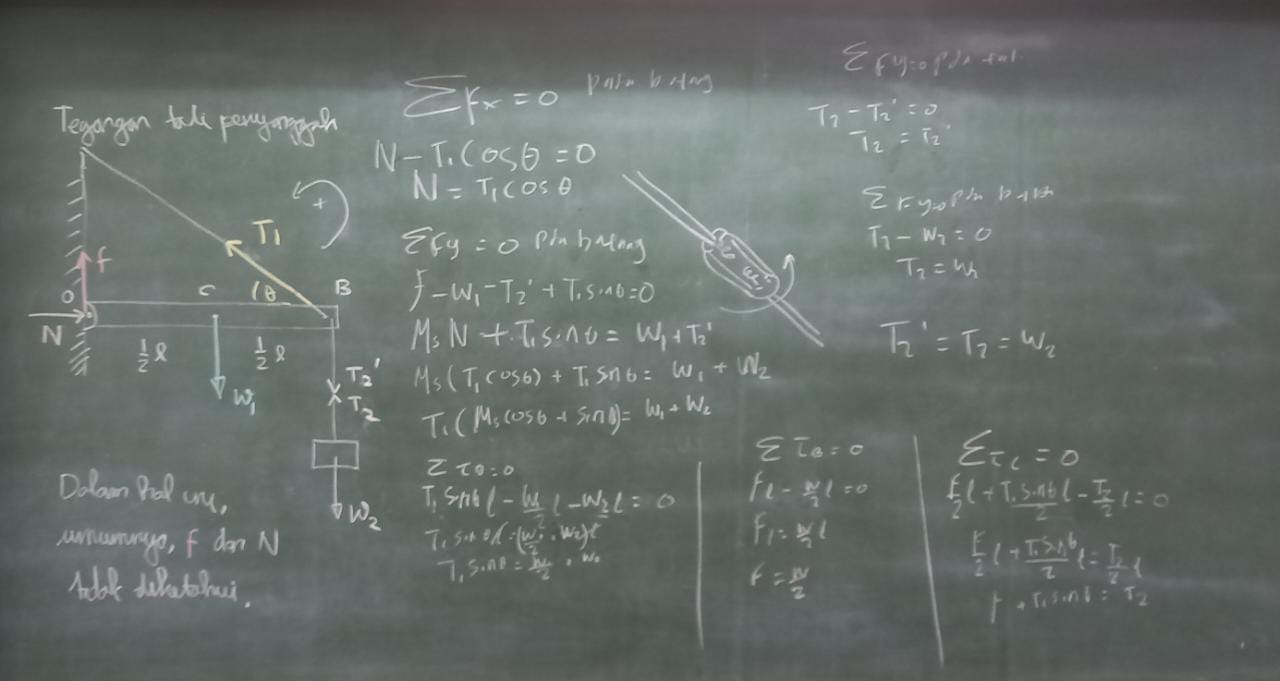 Tegangan tali penyanggah
T₁
+
f
O
C
θ
B
N
½ ℓ
½ ℓ
W₁
T₂'
T₂
W₂
Dalam hal ini,
umumnya, f dan N
tidak diketahui.
ΣFx = 0 pada batang
N - T₁ cos θ = 0
N = T₁ cos θ
ΣFy = 0 pada batang
f - W₁ - T₂' + T₁ sin θ = 0
Ms N + T₁ sin θ = W₁ + T₂'
Ms (T₁ cos θ) + T₁ sin θ = W₁ + W₂
T₁ (Ms cos θ + sin θ) = W₁ + W₂
Στ0 = 0
T₁ sin θ ℓ - W₁/2 ℓ - W₂ ℓ = 0
T₁ sin θ ℓ = (W₁/2 + W₂) ℓ
T₁ sin θ =
ΣFy=0 pda tali
T₂ - T₂' = 0
T₂ = T₂'
ΣFy=0 pda
T₂ - W₂ = 0
T₂ = W₂
T₂' = T₂ = W₂
ΣτB = 0
Fℓ - W/2 ℓ = 0
F = W/2
Στc = 0
F/2 ℓ + T₁ sin θ/2 ℓ - T₂/2 ℓ = 0
F/2 ℓ + T₁ sin θ/2 ℓ = T₂/2 ℓ
F + T₁ sin θ = T₂